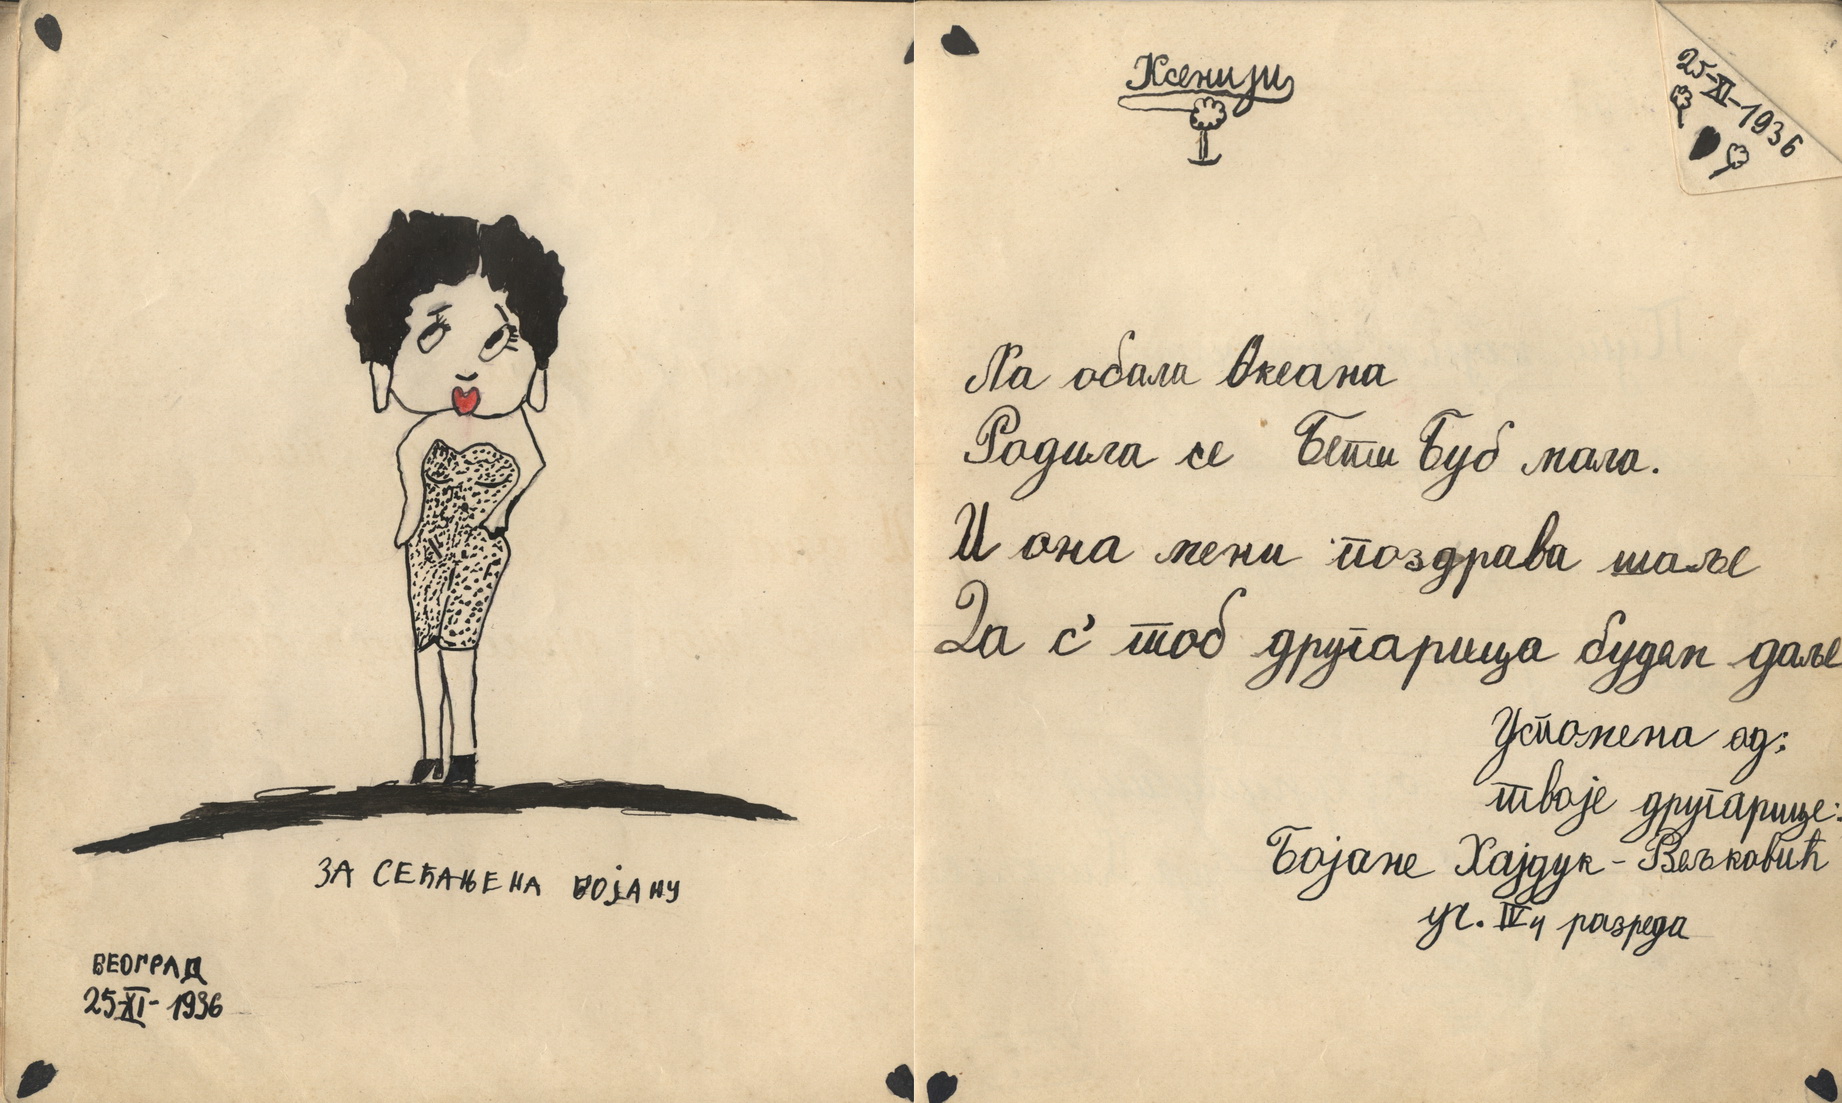 ЗА СЕЋАЊЕ НА БОЈАНУ
БЕОГРАД
25-XI-1936
Ксенији
25-XI-1936
На обали Океана
Родила се Бети Буб мала.
И она мени поздрава шаље
Да с' тоб другарица будем даље
Успомена од:
твоје другарице:
Бојане Хајдук-Вељковић
уч. IV ч разреда